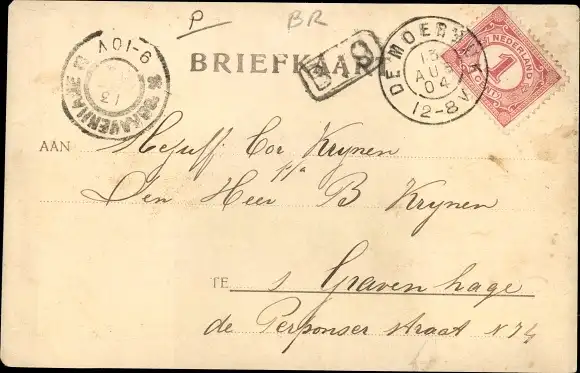 P BR
BRIEFKAART
DE MOER
13
AUG
04
12-8V
NEDERLAND
1
CENT
'S GRAVENHAGE
9-10V
13
AAN Mejuff. Cor Krijnen
p/a
Den Heer B Krijnen
TE s Gravenhage
de Perponser straat N 74